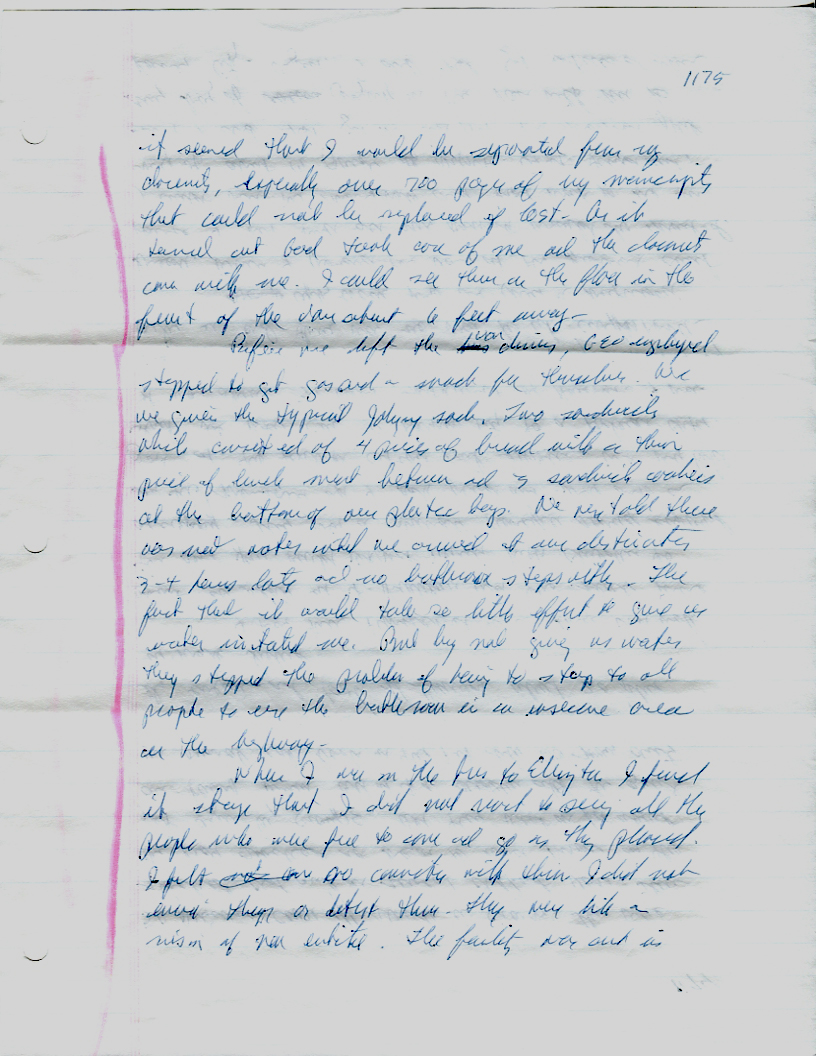 1175
it seemed that I would be separated from my
documents, especially over 700 pages of my manuscripts
that could not be replaced if lost. As it
turned out God took care of me and the document
came with me. I could see them on the floor in the
front of the van about 6 feet away-
Before we left the van drivers, GEO employed
stopped to get gas and a snack for themselves. We
we given the typical Johnny sack. Two sandwichs
which consisted of 4 pieces of bread with a thin
piece of lunch meat between and 3 sandwich cookies
at the bottom of our plastic bags. We were told there
was not water until we arrived at our destination
3-4 hours late and no bathroom stops either. The
fact that it would take so little effort to give us
water irritated me. But by not giving us water
they stopped the problem of having to stop to all
people to use the bathroom in an insecure area
on the highway-
When I was on the bus to I found
it strange that I did not react to seeing all the
people who were free to come and go as they pleased.
I felt no connection with them I did not
envy them or detest them. They were like a
of non entities. The facility was out in